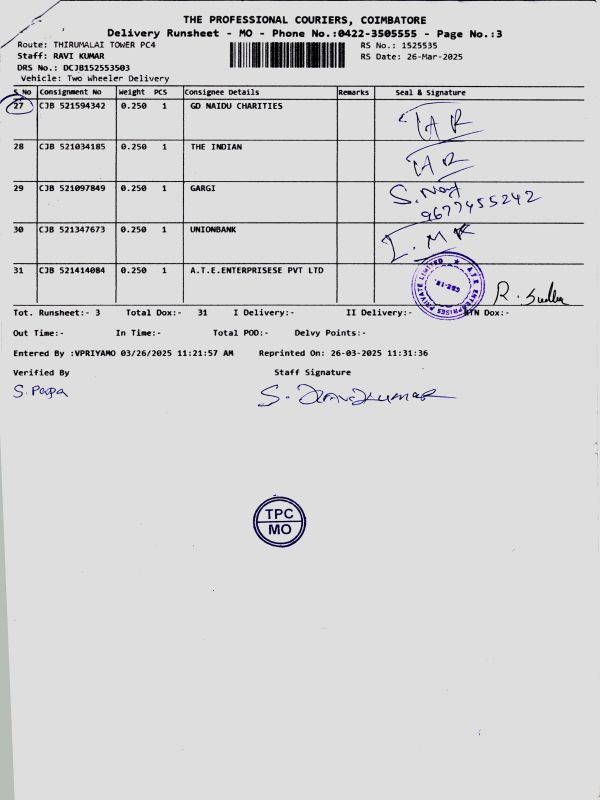 THE PROFESSIONAL COURIERS, COIMBATORE
Delivery Runsheet - MO - Phone No.:0422-3505555 - Page No.:3
Route: THIRUMALAI TOWER PC4 RS No.: 1525535
Staff: RAVI KUMAR RS Date: 26-Mar-2025
DRS No.: DCJB152553503
Vehicle: Two Wheeler Delivery
S No Consignment No Weight PCS Consignee Details Remarks Seal & Signature
27 CJB 521594342 0.250 1 GD NAIDU CHARITIES
28 CJB 521034185 0.250 1 THE INDIAN
29 CJB 521097849 0.250 1 GARGI
9677455242
30 CJB 521347673 0.250 1 UNIONBANK
31 CJB 521414084 0.250 1 A.T.E.ENTERPRISESE PVT LTD
A.T.E. ENTERPRISES PRIVATE LIMITED
CBE-18.
Tot. Runsheet:- 3 Total Dox:- 31 I Delivery:- II Delivery:- RTN Dox:-
Out Time:- In Time:- Total POD:- Delvy Points:-
Entered By :VPRIYAMO 03/26/2025 11:21:57 AM Reprinted On: 26-03-2025 11:31:36
Verified By Staff Signature
S. Papa S. Ravikumar
TPC
MO